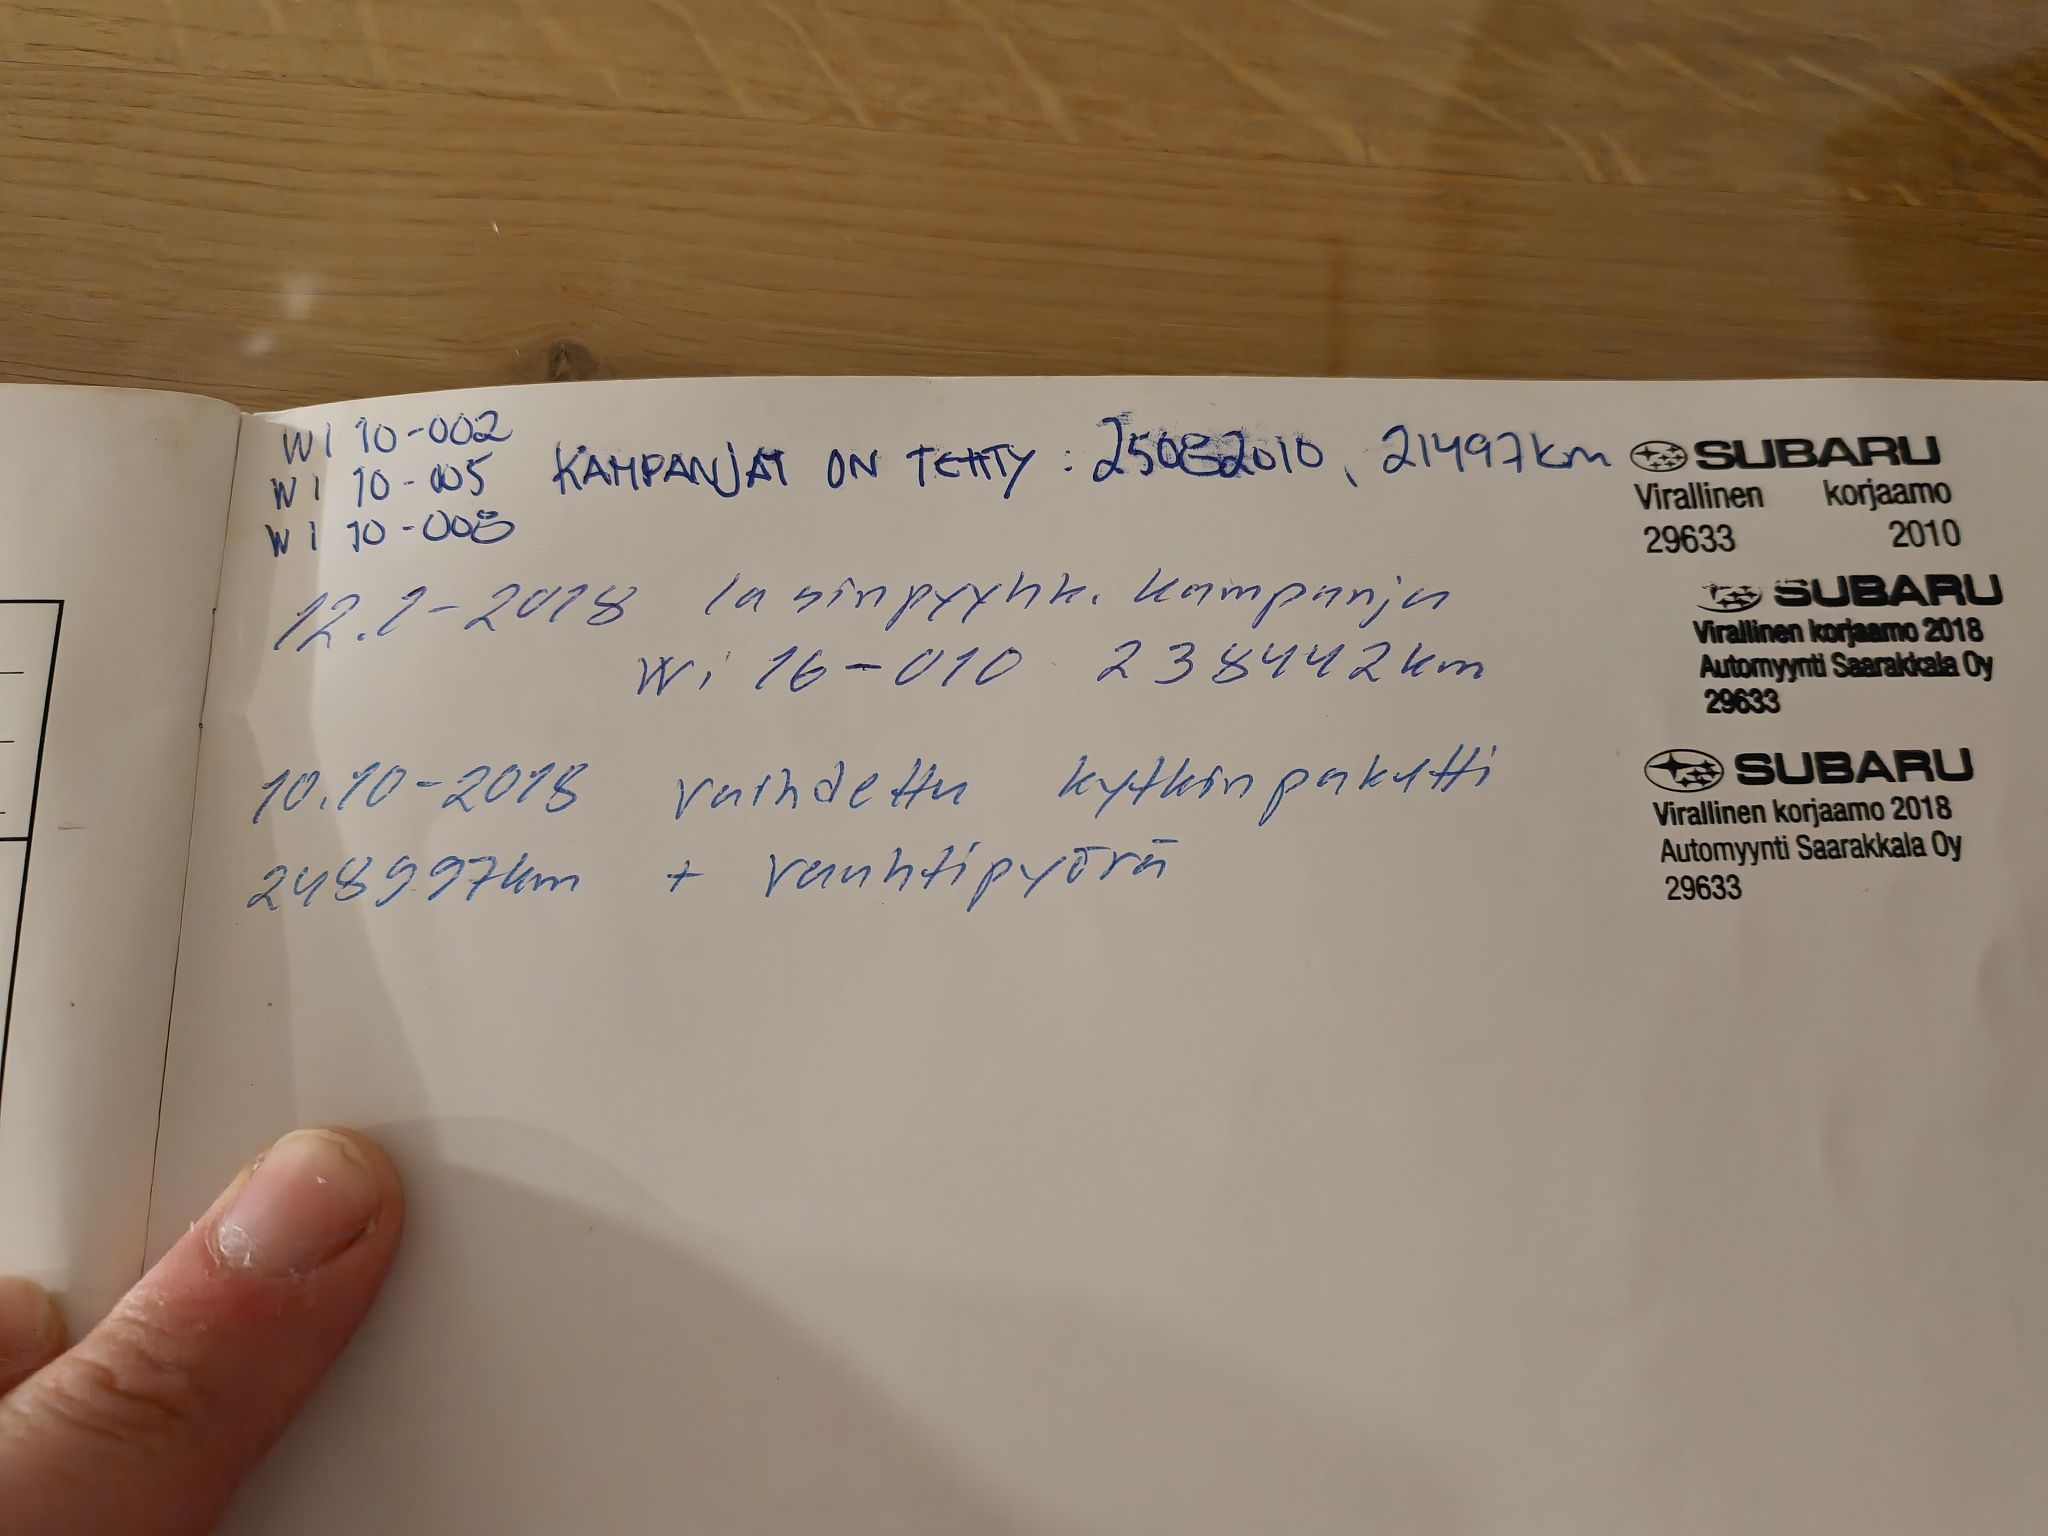 WI 10-002
WI 10-005 KAMPANJAT ON TEHTY : 25082010, 21497km
WI 10-008
SUBARU
Virallinen korjaamo
29633 2010
12.1-2018 lasinpyyhk. kampanja
Wi 16-010 238442km
SUBARU
Virallinen korjaamo 2018
Automyynti Saarakkala Oy
29633
10.10-2018 vaihdettu kytkinpaketti
248997km + vauhtipyörä
SUBARU
Virallinen korjaamo 2018
Automyynti Saarakkala Oy
29633